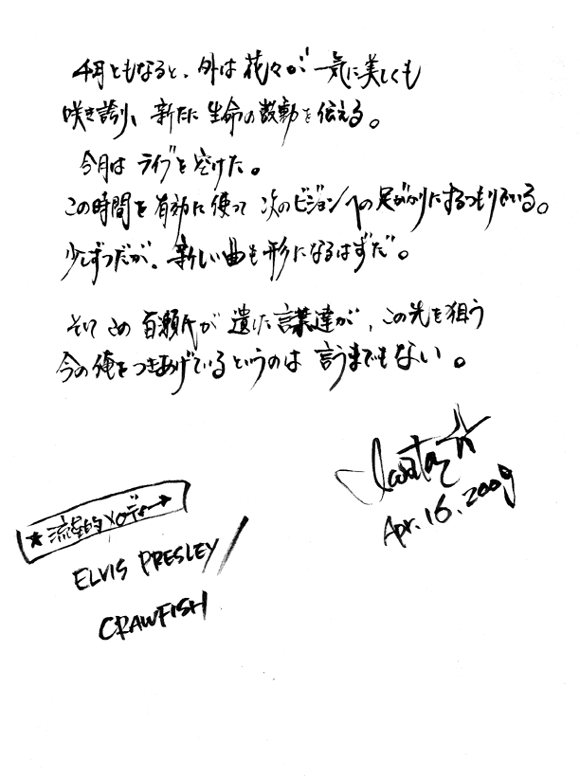 4月ともなると、外は花々が一気に美しくも
咲き誇り、新たに生命の鼓動を伝える。
今月はライブを空けた。
この時間を有効に使って次のビジョンへの足がかりにするつもりでいる。
少しずつだが、新しい曲も形になるはずだ。
そしてこの百瀬氏が遺した言葉達が、この先を狙う
今の俺をつきあげているというのは言うまでもない。
Apr. 16. 2009
★流星的メロディー→
ELVIS PRESLEY/
CRAWFISH